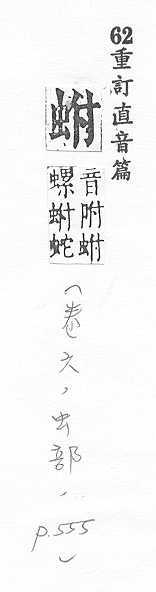 62重訂直音篇
蚹
音附蚹
螺蚹蛇
(卷六,虫部,p.555)